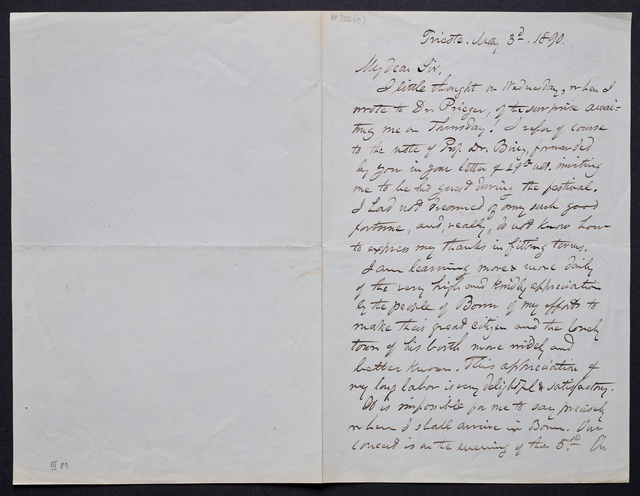 Trieste. May 3d. 1890.
My dear Sir,
I little thought on Wednesday, when I
wrote to Dr. Prieger, of the surprise await-
ing me on Thursday. I refer of course
to the note of Prof. Dr. Binz, forwarded
by you in your letter of 29th ult. inviting
me to be his guest during the festival.
I had not dreamed of any such good
fortune, and, really, do not know how
to express my thanks in fitting terms.
I am learning more & more daily
of the very high and kindly appreciation
by the people of Bonn of my efforts to
make their great citizen and the lovely
town of his birth more widely and
better known. This appreciation of
my long labor is very delightful & satisfactory.
It is impossible for me to say precisely
when I shall arrive in Bonn. Our
concert is on the evening of the 5th. On
III 89